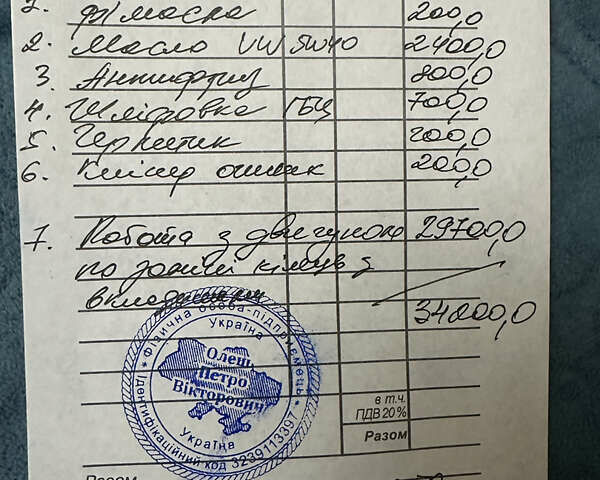 1. ф/масла 200,0
2. Масло VW 5W40 2400,0
3. Антифриз 800,0
4. Шліфовка ГБЦ 700,0
5. Герметик 200,0
6. 200,0
7. Робота з двигуном 29700,0
по заміні кілець з
вкладишами
34200,0
в т.ч.
ПДВ 20%
Разом
* Фізична особа-підприємець *
Україна
Олець
Петро
Вікторович
Україна
Ідентифікаційний код 3239113397
Разом